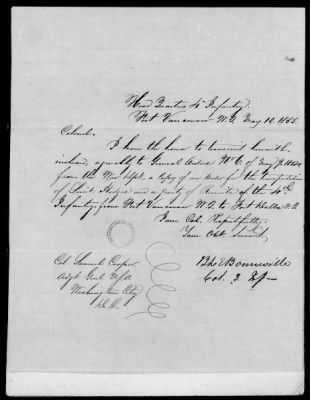 Head Quarters 4th Infantry,
Fort Vancouver W.T. May 10, 1855
Colonel.
I have the honor to transmit herewith
inclosed, agreeably to General Orders No 6, of May 7, 1854
from the War Dept. a copy of an Order for the Transportation
of Lieut. Hodges and a party of Recruits of the 4th
Infantry, from Fort Vancouver W.T. to Fort Dalles
I am Col. Respectfully
Your Obt. Servt,
Col Samuel Cooper,
Adjt. Genl. U.S.A.
Washington City
D.C.
B L E Bonneville
Col.